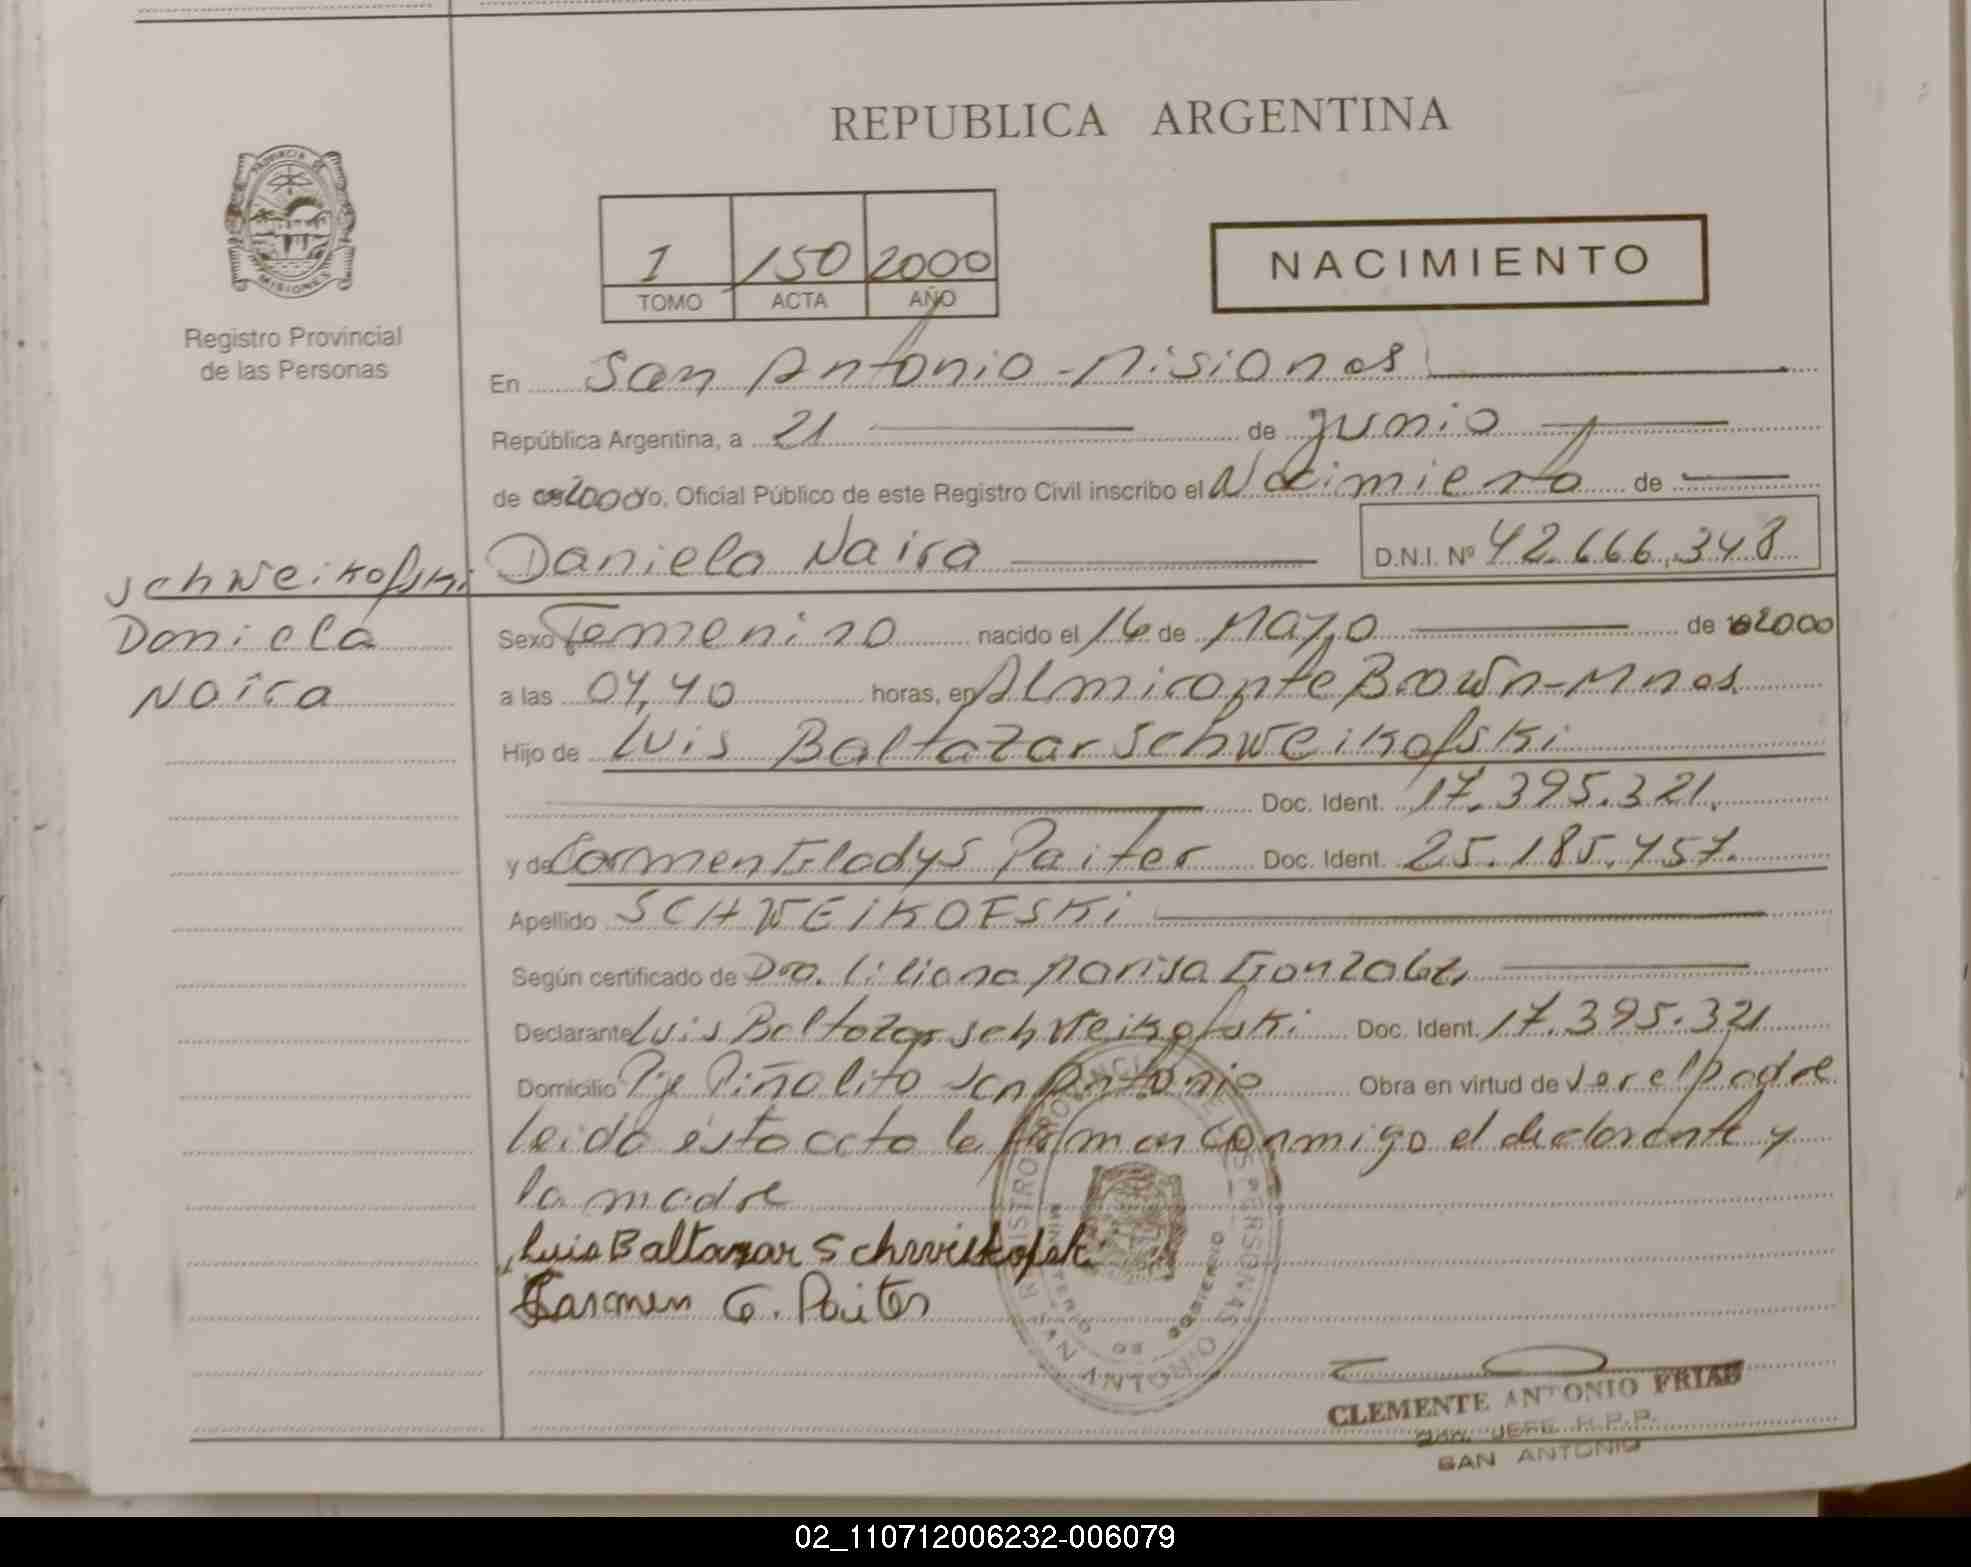 REPUBLICA ARGENTINA
PROVINCIA DE
MISIONES
Registro Provincial
de las Personas
1 150 2000
TOMO ACTA AÑO
NACIMIENTO
En San Antonio - Misiones
República Argentina, a 21 de junio
de 2000 yo, Oficial Público de este Registro Civil inscribo el Nacimiento de
Daniela Naira D.N.I. Nº 42.666.348
Schweikofski
Daniela
Naira
Sexo Femenino nacido el 16 de Mayo de 2000
a las 04,40 horas, en Almirante Brown - Mnes.
Hijo de Luis Baltazar Schweikofski
Doc. Ident. 17.395.321.
y de Carmen Gladys Paiter Doc. Ident. 25.185.457.
Apellido SCHWEIKOFSKi
Según certificado de Dra. Liliana Marisa Gonzalez
Declarante Luis Baltazar Schweikofski Doc. Ident. 17.395.321
Domicilio Pje Piñalito San Antonio Obra en virtud de ser el padre
leida esta acta la firman conmigo el declarante y
la madre
Luis Baltazar Schweikofski
Carmen G. Paiter
REGISTRO PROVINCIAL DE LAS PERSONAS
MINISTERIO DE GOBIERNO
SAN ANTONIO
CLEMENTE ANTONIO FRIAS
JEFE R.P.P.
SAN ANTONIO
02_110712006232-006079